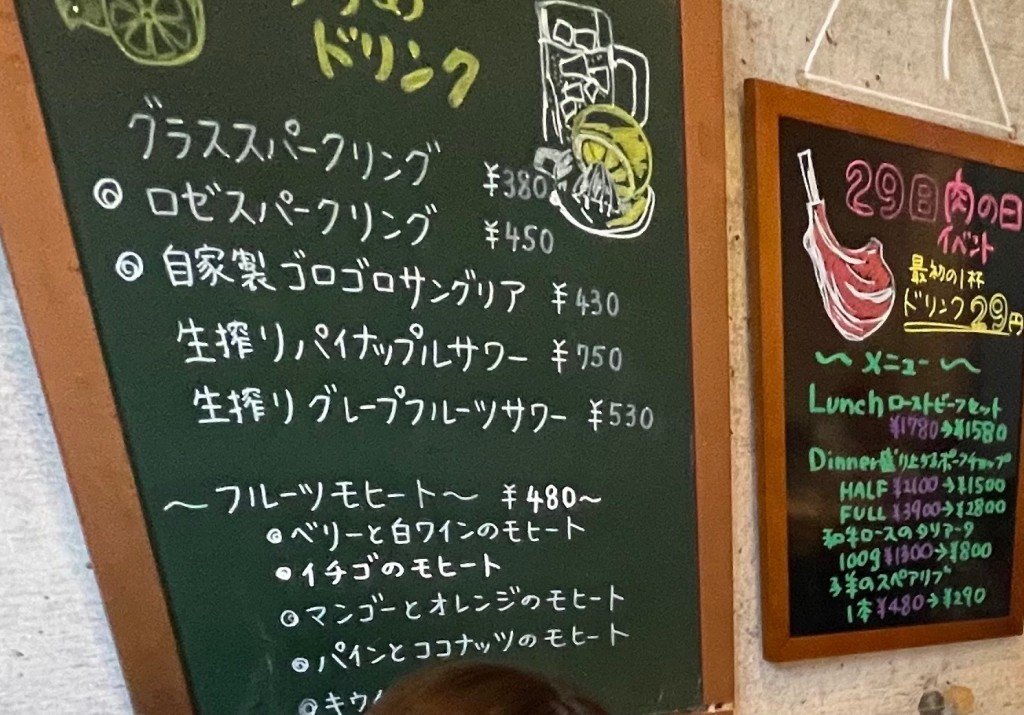 ドリンク
グラススパークリング ¥380
◎ ロゼスパークリング ¥450
◎ 自家製ゴロゴロサングリア ¥430
生搾りパイナップルサワー ¥750
生搾りグレープフルーツサワー ¥530
〜フルーツモヒート〜 ¥480〜
◎ベリーと白ワインのモヒート
◎イチゴのモヒート
◎マンゴーとオレンジのモヒート
◎パインとココナッツのモヒート
◎キウイ
29日肉の日
イベント
最初の1杯
ドリンク29円
〜メニュー〜
Lunchローストビーフセット
¥1780→¥1580
Dinner盛り上がるポークチョップ
HALF ¥2100→¥1500
FULL ¥3900→¥2800
和牛ロースのタリアータ
100g¥1300→¥800
子羊のスペアリブ
1本¥480→¥290